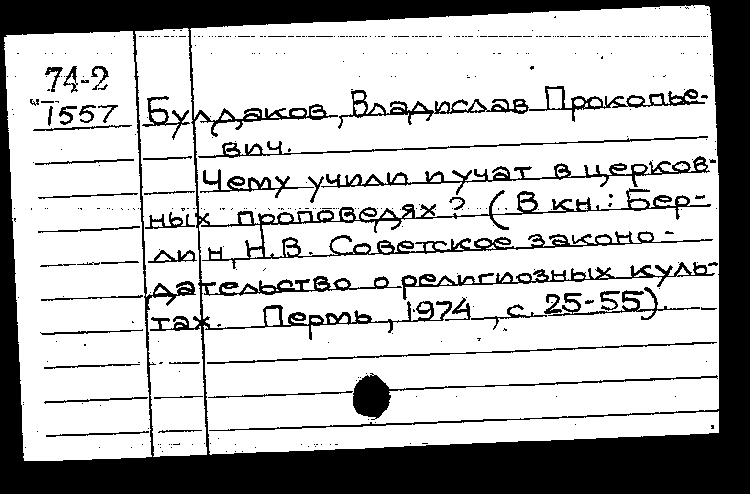 74-2
1557
Булдаков, Владислав Прокопье-
вич.
Чему учили и учат в церков-
ных проповедях? (В кн.: Бер-
лин, Н.В. Советское законо-
дательство о религиозных куль-
тах. Пермь, 1974, с. 25-55).